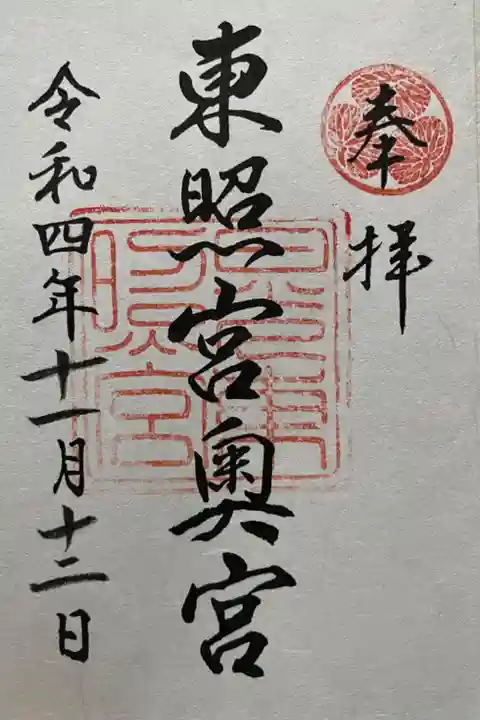 奉拝
東照宮奥宮
令和四年十一月十二日